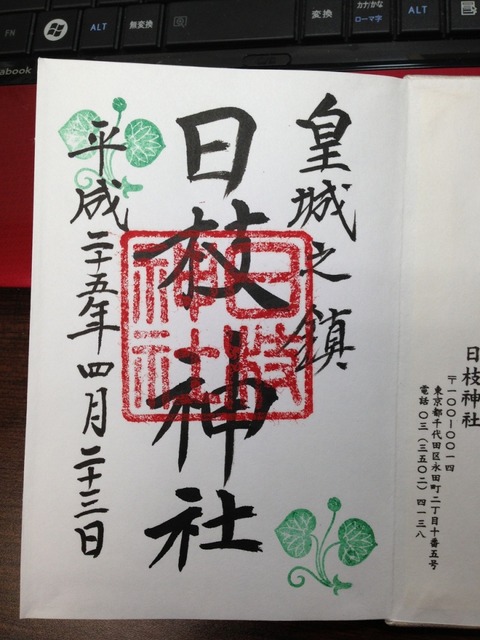 日枝神社
〒一〇〇-〇〇一四
東京都千代田区永田町二丁目十番五号
電話 〇三(三五〇二)四一三八
皇城之鎮
日枝神社
日枝
神社
平成二十五年四月二十三日
FN
ALT
無変換
変換
カナ/かな
ローマ字
ALT
abook